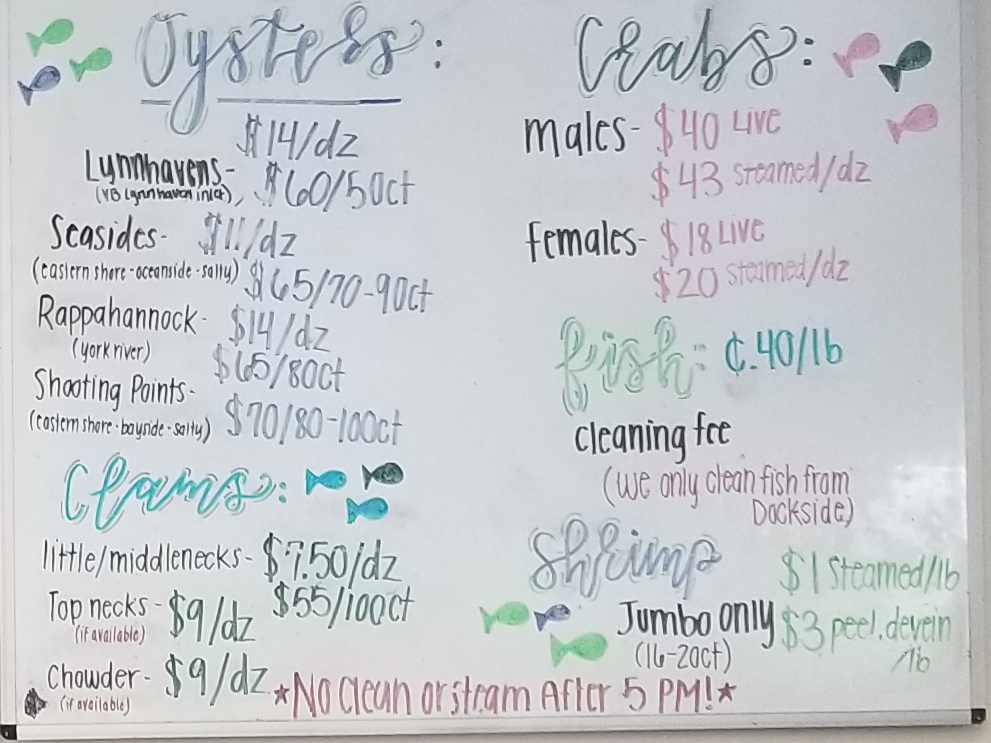 Oysters:
$14/dz
Lynnhavens-
(VB Lynnhaven inlet), $60/50ct
Seasides- $11/dz
(eastern shore-oceanside-salty) $65/70-90ct
Rappahannock- $14/dz
(york river) $65/80ct
Shooting Points-
(eastern shore-bayside-salty) $70/80-100ct
Clams:
little/middlenecks- $7.50/dz
$55/100ct
Top necks- $9/dz
(if available)
Chowder- $9/dz
(if available)
Crabs:
males- $40 Live
$43 steamed/dz
females- $18 Live
$20 steamed/dz
fish: ¢.40/lb
cleaning fee
(we only clean fish from
Dockside)
Shrimp
$1 steamed/lb
Jumbo only $3 peel, devein
(16-20ct) /lb
*No Clean or steam After 5 PM!*